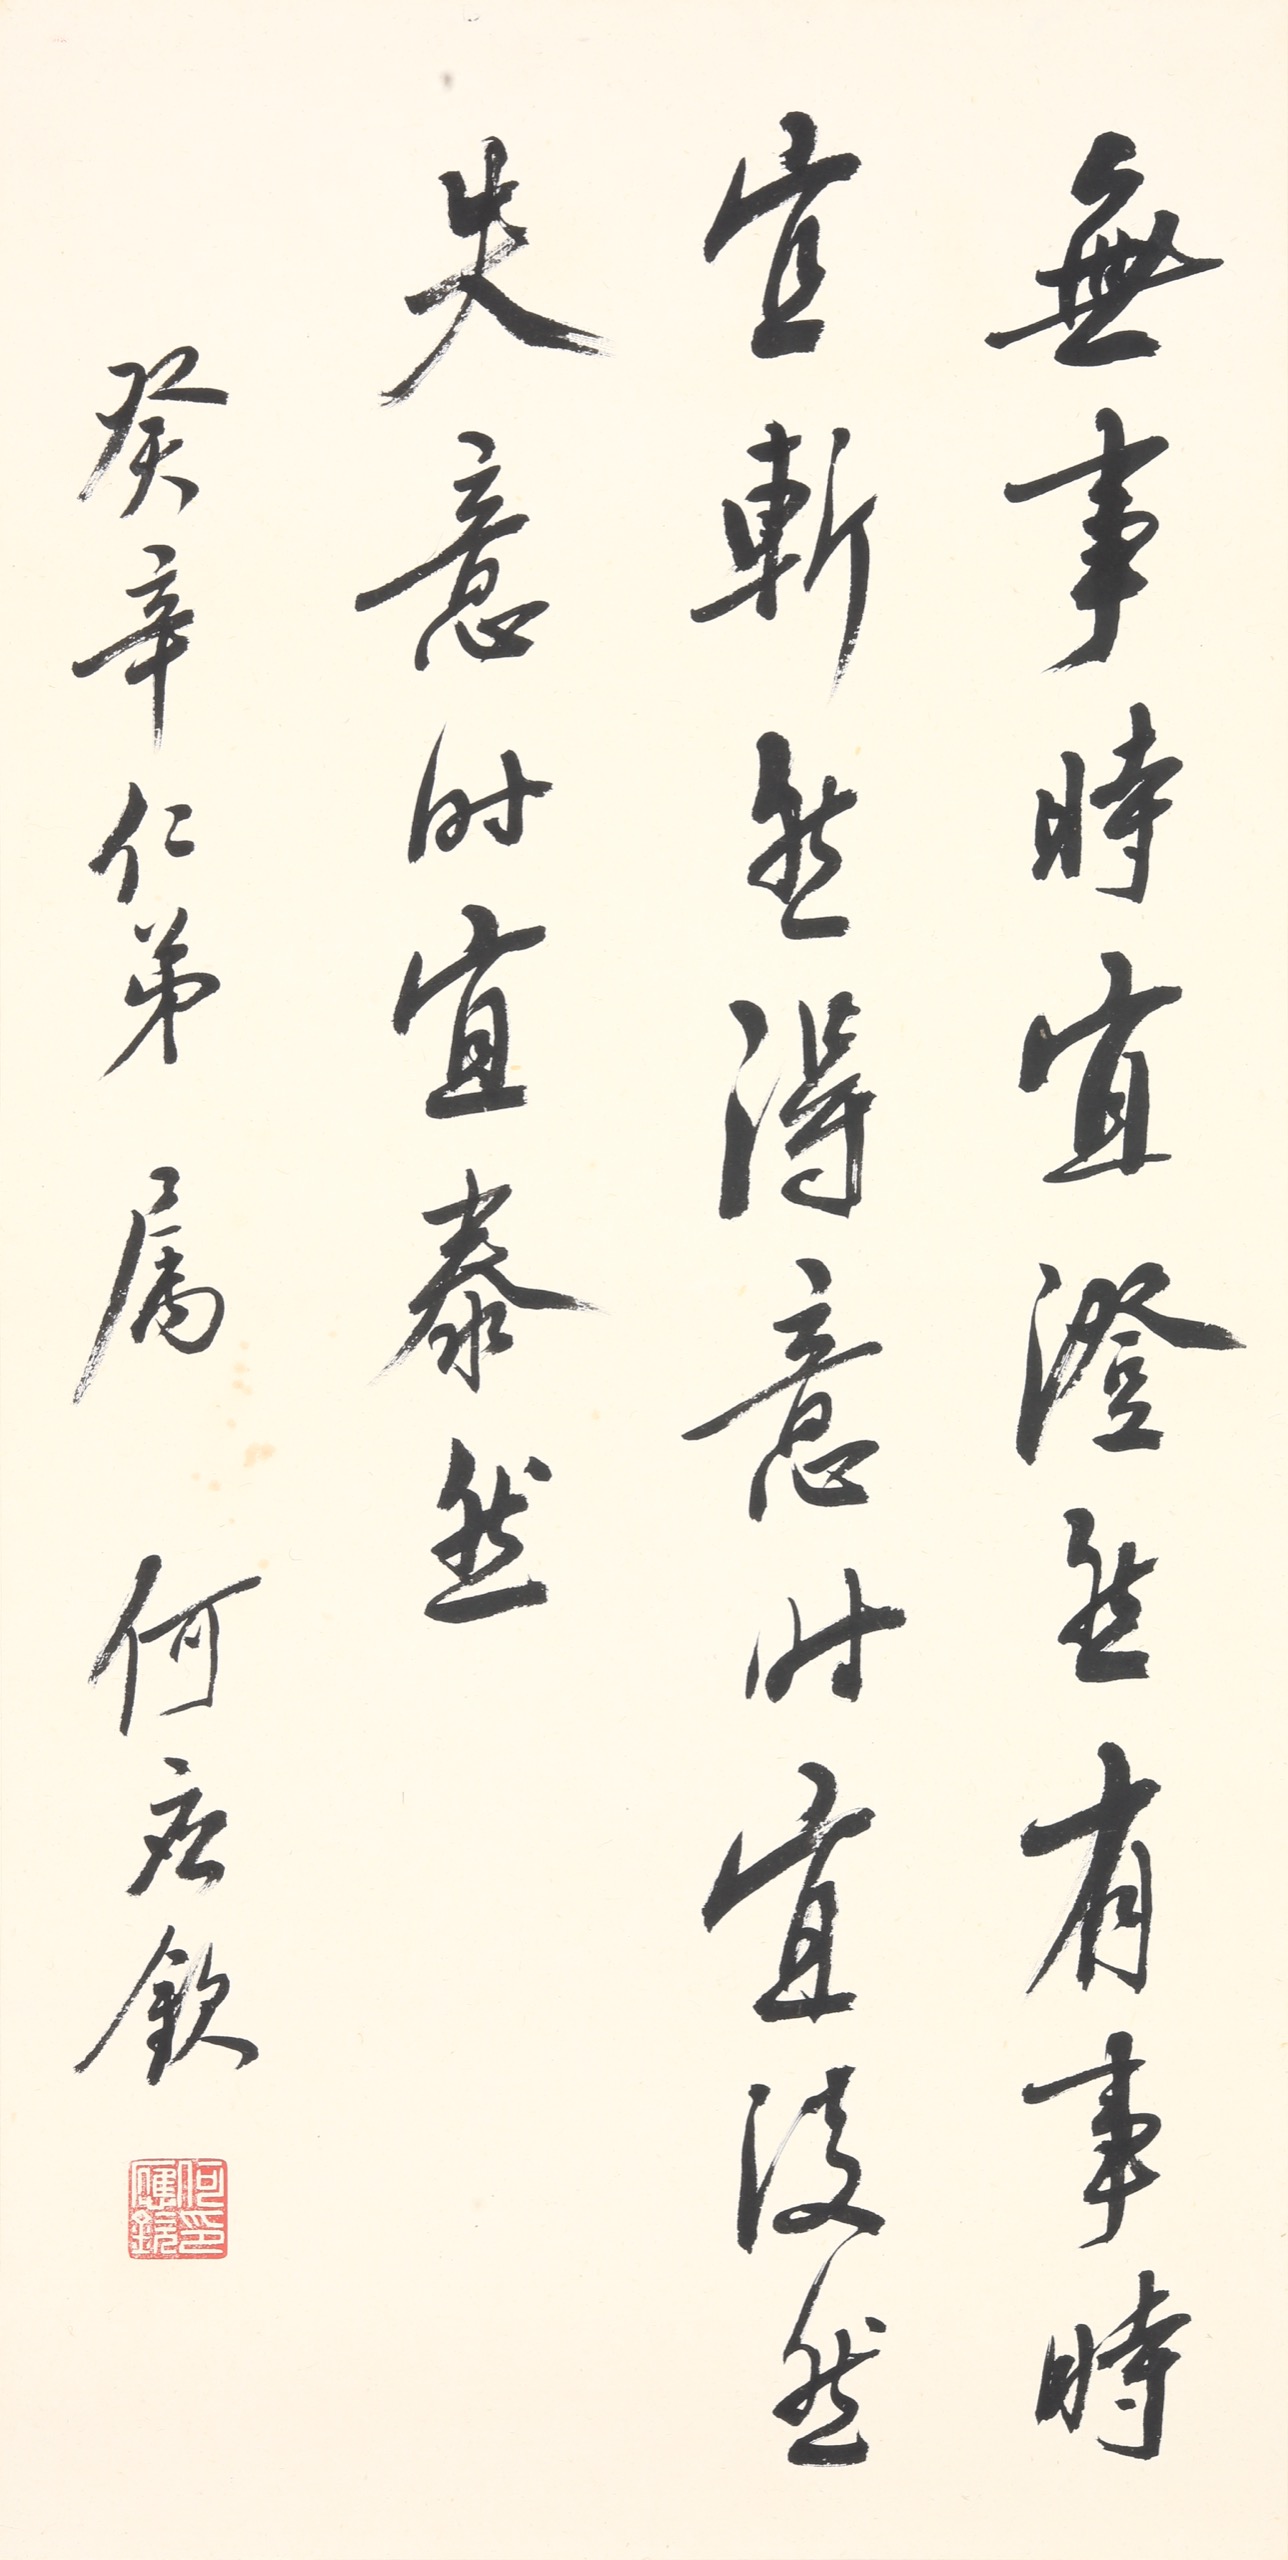 無事時宜澄然有事時
宜斬然得意时宜淡然
失意时宜泰然
癸辛仁弟 属 何应欽
何印應欽